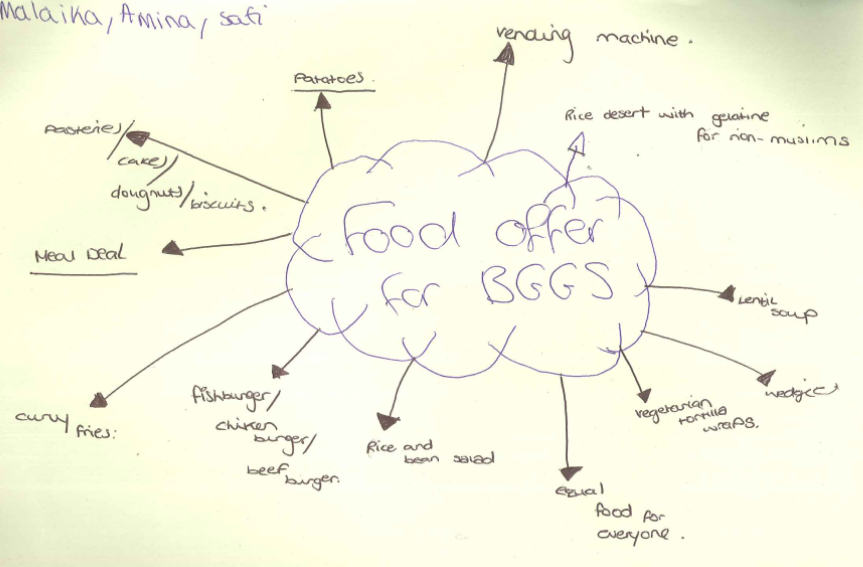 Malaika, Amina, safi
vending machine.
Patatoes.
Rice desert with gelatine
for non-muslims
Pasteries/
cakes/
dougnuts/biscuits.
Food offer
for BGGS
Meal Deal
Lentil
soup
wedges
vegetarian
tortilla
wraps.
curvy fries.
fishburger/
chicken
burger/
beef
burger.
Rice and
bean salad
equal
food for
everyone.